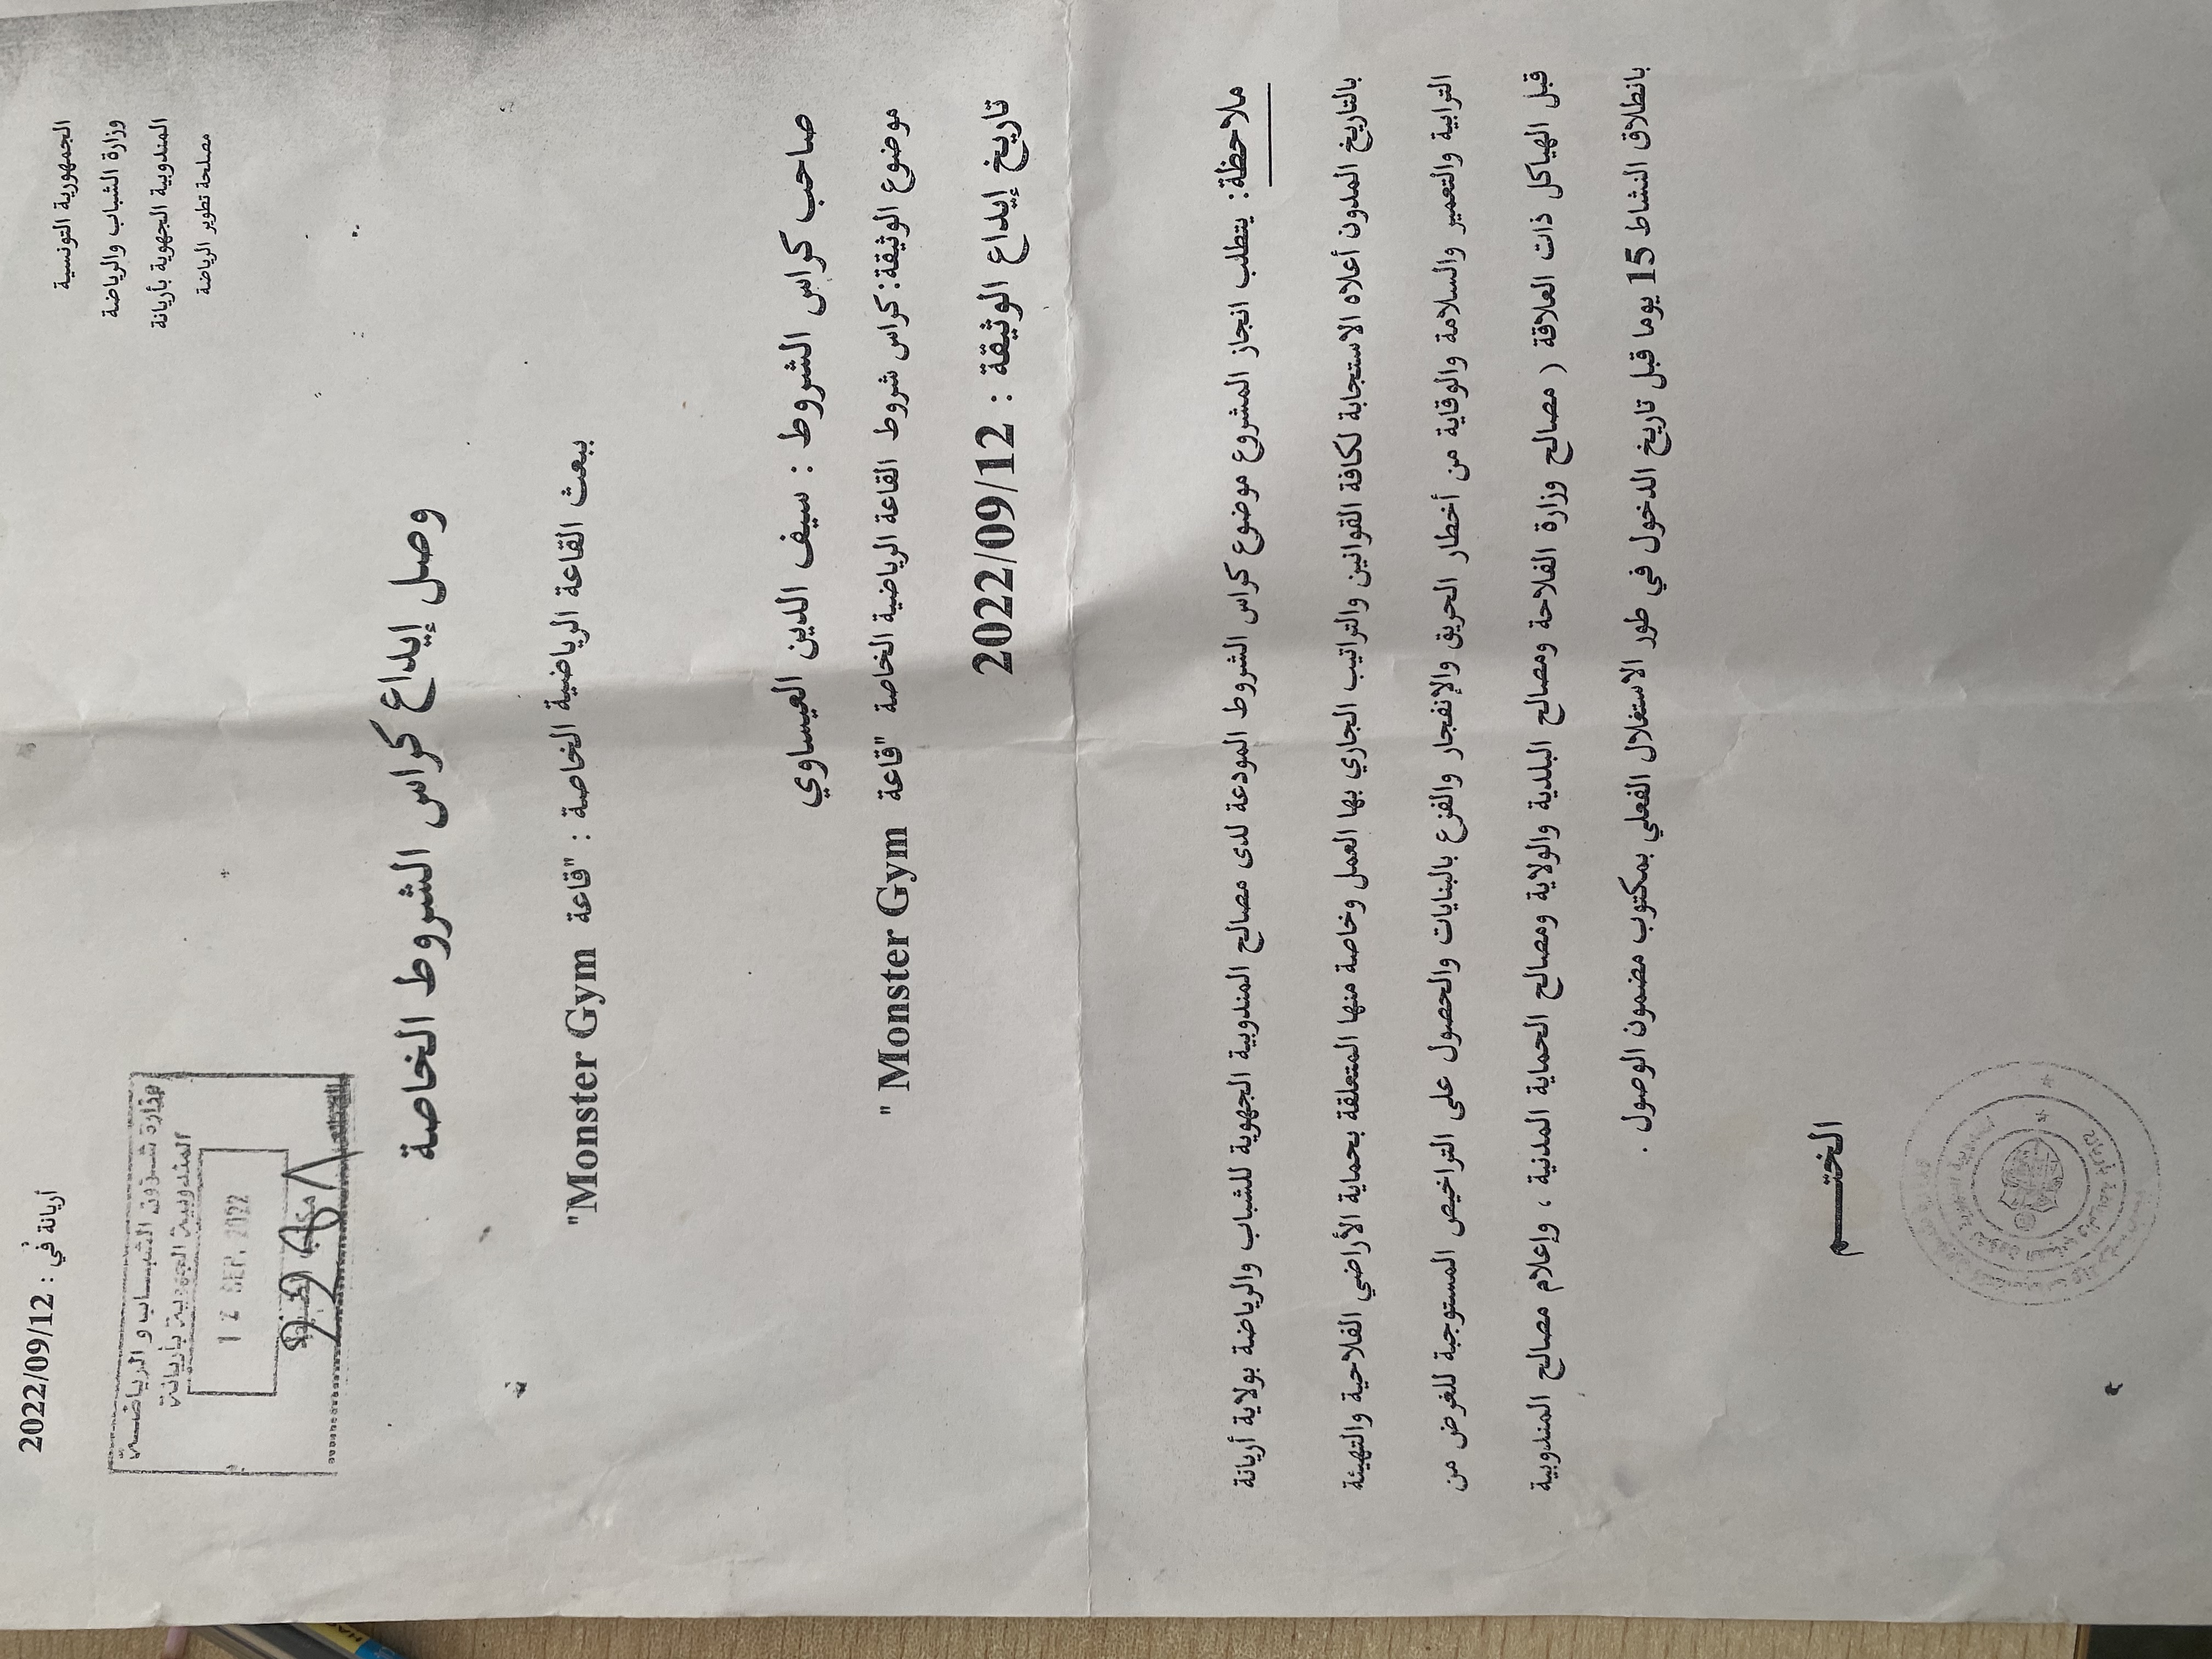 الجمهورية التونسية
وزارة الشباب والرياضة
المندوبية الجهوية بأريانة
مصلحة تطوير الرياضة
أريانة في : 2022/09/12
وزارة شؤون الشباب والرياضة
المندوبية الجهوية بأريانة
12 SEP. 2022
وصل إيداع كراس الشروط الخاصة
ببعث القاعة الرياضية الخاصة : "قاعة Monster Gym"
صاحب كراس الشروط : سيف الدين العيساوي
موضوع الوثيقة: كراس شروط القاعة الرياضية الخاصة "قاعة Monster Gym "
تاريخ إيداع الوثيقة : 2022/09/12
ملاحظة: يتطلب انجاز المشروع موضوع كراس الشروط المودعة لدى مصالح المندوبية الجهوية للشباب والرياضة بولاية أريانة
بالتاريخ المدون أعلاه الاستجابة لكافة القوانين والتراتيب الجاري بها العمل وخاصة منها المتعلقة بحماية الأراضي الفلاحية والتهيئة
الترابية والتعمير والسلامة والوقاية من أخطار الحريق والإنفجار والفزع بالبنايات والحصول على التراخيص المستوجبة للغرض من
قبل الهياكل ذات العلاقة ( مصالح وزارة الفلاحة ومصالح البلدية والولاية ومصالح الحماية المدنية ، وإعلام مصالح المندوبية
بانطلاق النشاط 15 يوما قبل تاريخ الدخول في طور الاستغلال الفعلي بمكتوب مضمون الوصول .
الختـــــم